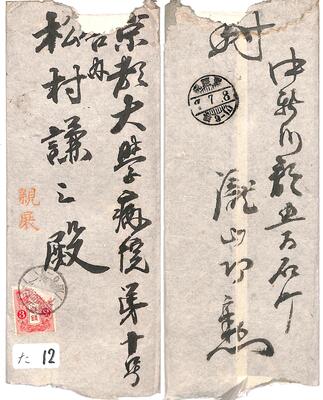 京都大學病院第十号
台内
松村謙三殿
親展
3
た 12
封
7.8
中新川郡五百石町
瀧山